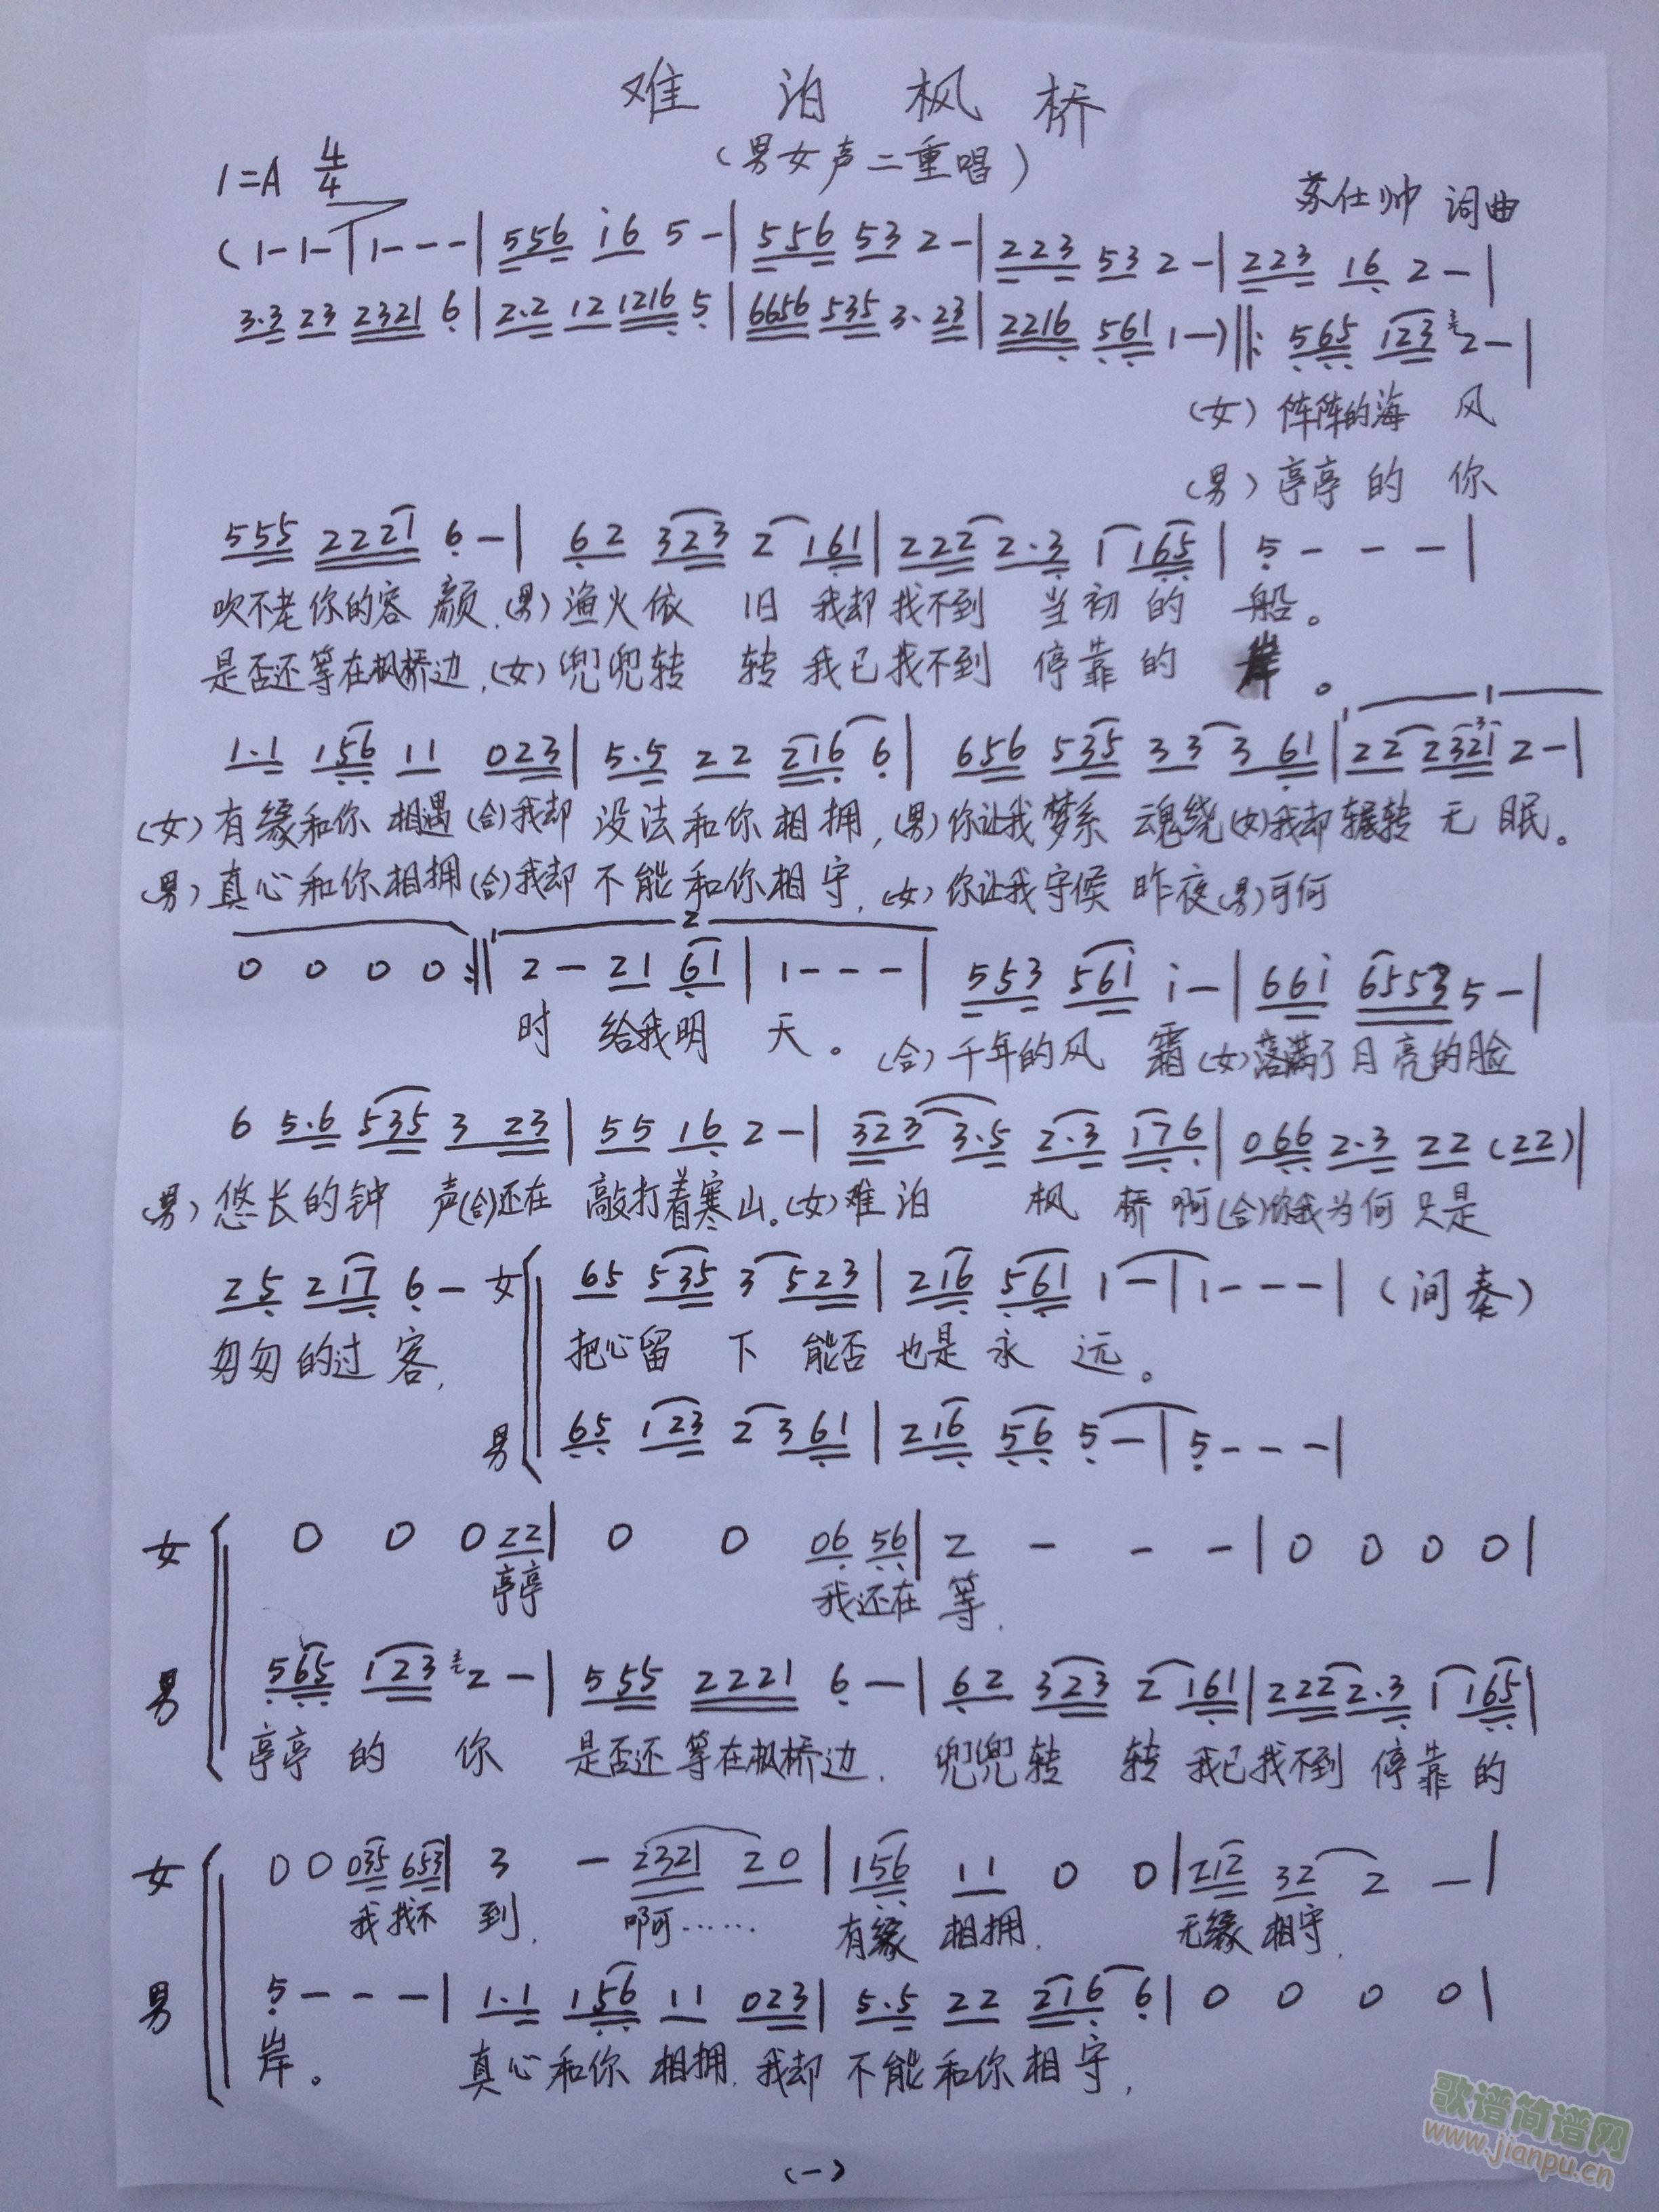 难泊枫桥
(男女声二重唱)
1=A 4/4
苏仕帅 词曲
(1-1-|1---|556 i6 5-|556 53 2-|223 53 2-|223 16 2-|
3·3 23 2321 6|2·2 12 1216 5|6656 535 3·23|2216 561 1-)‖:565 123 2-|
(女)阵阵的海 风
(男)亭亭的 你
555 2221 6-|62 323 2 161|222 2·3 1 165|5---|
吹不老你的容颜.(男)渔火依 旧 我却找不到 当初的 船。
是否还等在枫桥边.(女)兜兜转 转 我已找不到 停靠的 岸。
1·1 156 11 023|5·5 22 216 6|656 535 33 3 61|22 2321 2-|
(女)有缘和你相遇(合)我却没法和你相拥,(男)你让我梦系 魂绕(女)我却辗转 无眠。
(男)真心和你相拥(合)我却不能和你相守,(女)你让我守候 昨夜(男)可何
0 0 0 0:‖2-21 61|1---|553 561 i-|66i 6553 5-|
时 给我明 天。(合)千年的风 霜(女)落满了月亮的脸
6 5·6 535 3 23|55 16 2-|323 3·5 2·3 176|066 2·3 22 (22)|
(男)悠长的钟 声(合)还在 敲打着寒山。(女)难泊 枫 桥啊(合)你我为何只是
25 217 6- 女 65 535 3 523|216 561 1-|1---|(间奏)
匆匆的过客, 把心留 下 能否也是永 远。
男 65 123 2 361|216 56 5-|5---|
女 0 0 0 22|0 0 06 56|2 - - -|0 0 0 0|
亭亭 我还在 等.
男 565 123 2-|555 2221 6-|62 323 2 161|222 2·3 1 165|
亭亭的 你 是否还等在枫桥边. 兜兜转 转 我已找不到 停靠的
女 0 0 035 653|3 - 2321 20|156 11 0 0|212 32 2 -|
我找不 到. 啊…… 有缘 相拥. 无缘 相守.
男 5---|1·1 156 11 023|5·5 22 216 6|0 0 0 0|
岸。 真心和你 相拥.我却 不能和你相守,
(一)
歌谱简谱网
www.jianpu.cn